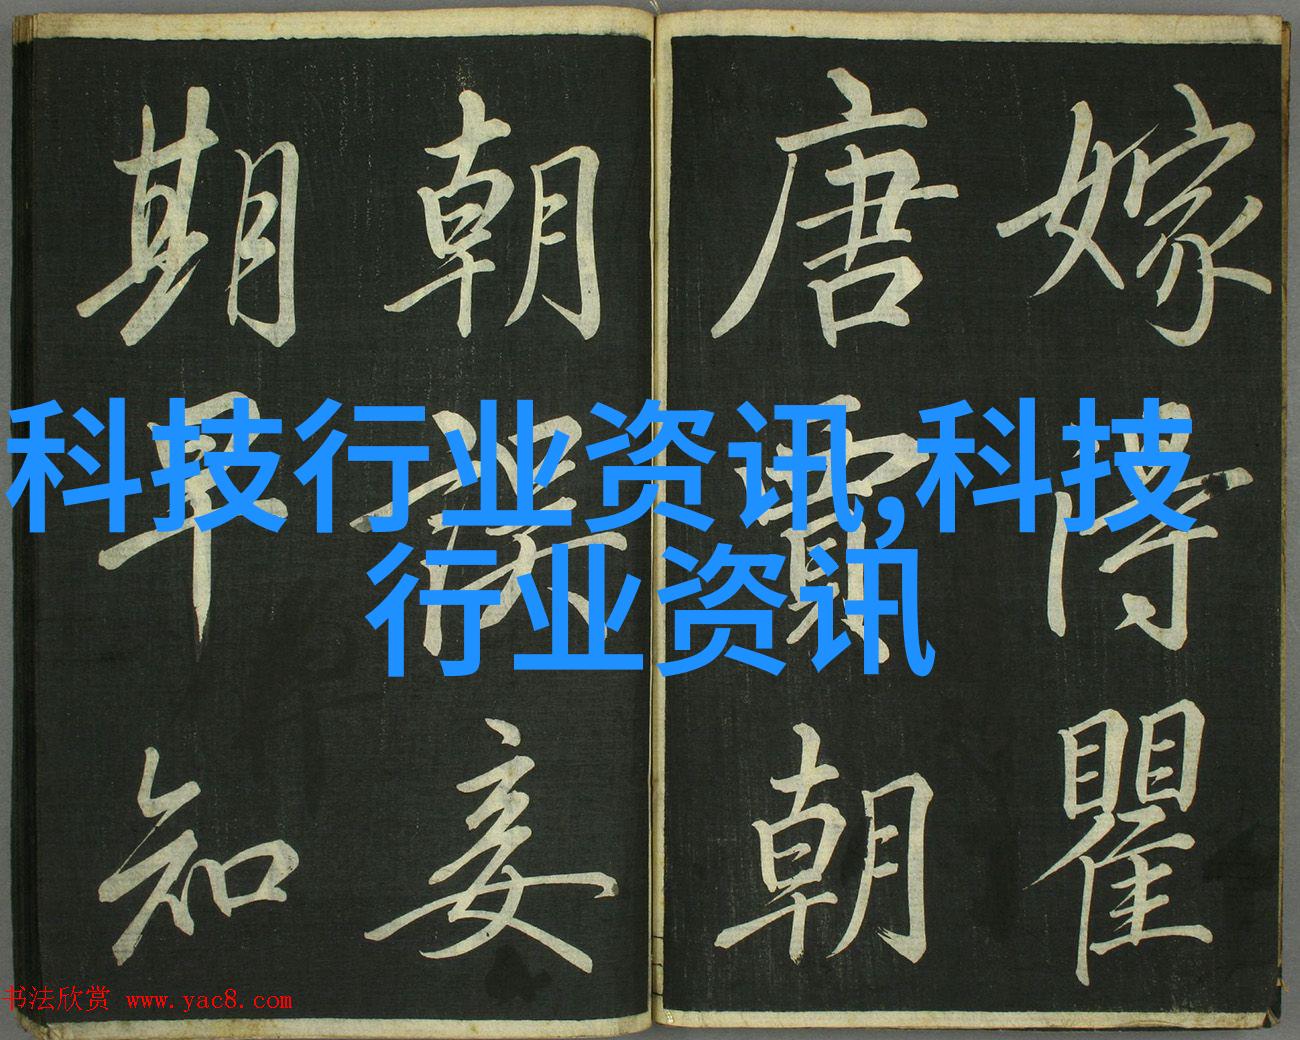 嫁得瞿
唐賈朝
朝誤妾
期早知
科技行业资讯,科技
行业资讯
书法欣赏 www.yac8.com